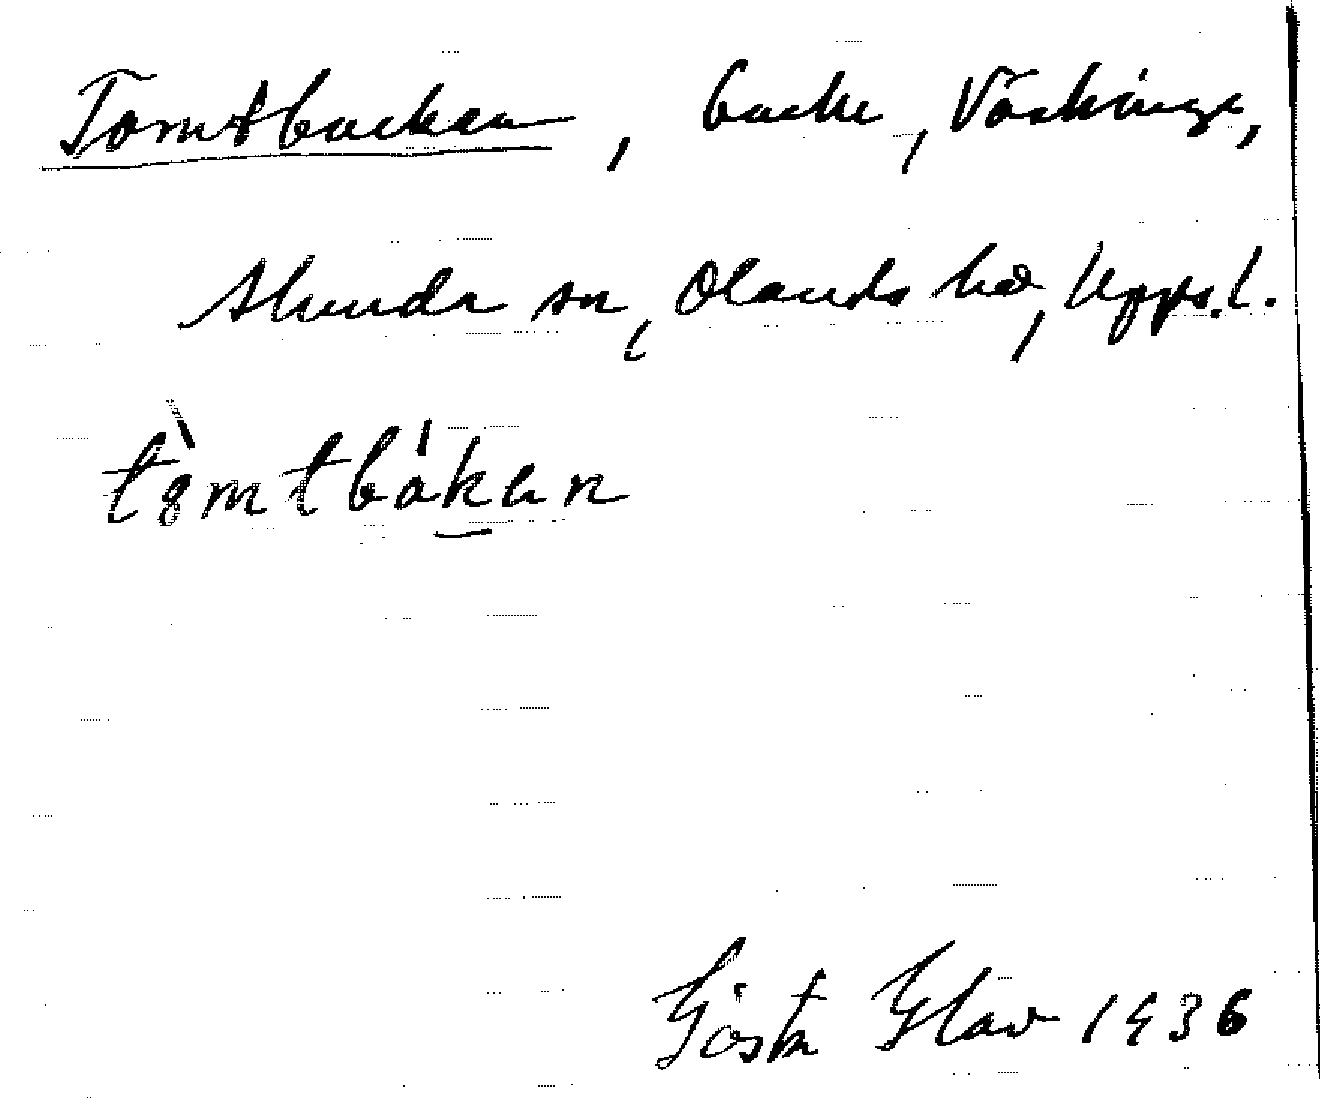 Tomtbacken, backe, Väskinge,
Alunda sn, Olands hd, Upps. l.
tòmtbákan
Gösta Glav 1936